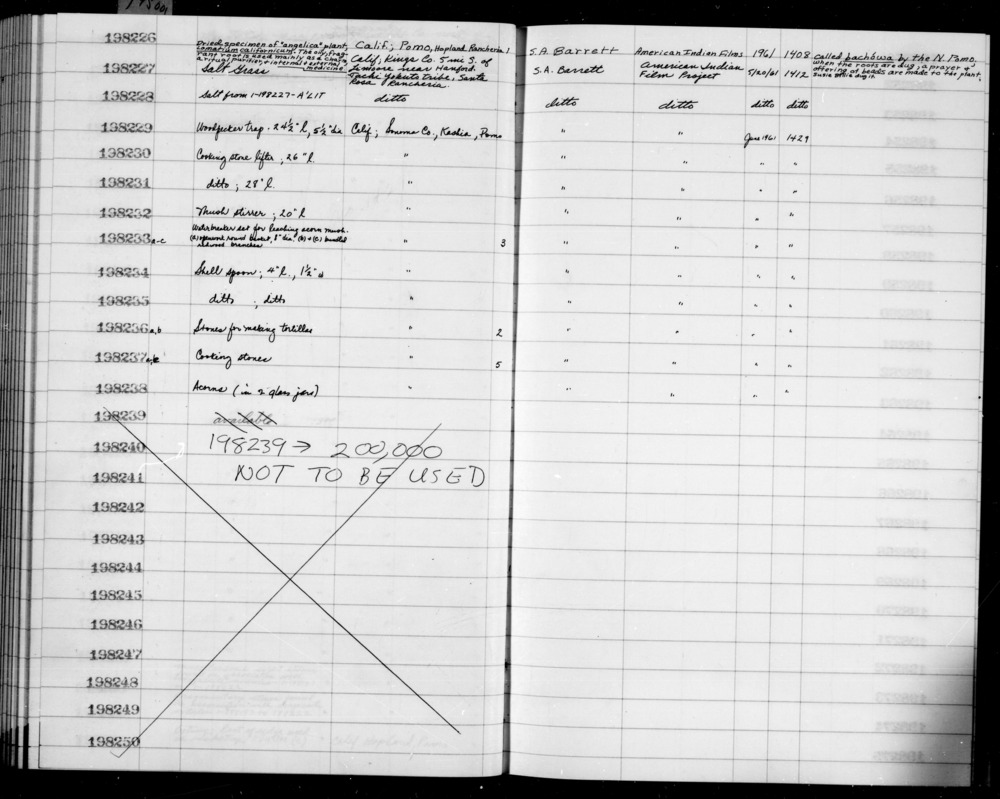 198226 Dried specimen of "angelica" plant, Lomatium californicum. The oily, fragrant root is used mainly as a charm, a ritual purifier, + internal + external medicine Calif.; Pomo, Hopland Rancheria 1 S.A. Barrett American Indian Films 1961 1408 called bachówa by the N. Pomo. When the roots are dug, a prayer + offering of beads are made to the plant,
198227 Salt Grass Calif; Kings Co. 5 mi S. of Lemoore near Hanford. Tachi Yokuts Tribe, Santa Rosa Rancheria. S.A. Barrett American Indian Film Project 5/20/61 1412
198228 Salt from 1-198227 - A'LIT ditto ditto ditto ditto ditto
198229 Woodpecker trap. 24½" l, 5½" dia Calif; Sonoma Co., Kashia, Pomo " " June 1961 1429
198230 Cooking stone lifter; 26" l. " " " " "
198231 ditto; 28" l. " " " " "
198232 Mush stirrer; 20" l " " " " "
198233 a-c Waterbreaker set for leaching acorn mush. (a) openwork round basket, " dia. (b) + (c) bundled redwood branches " 3 " " " "
198234 Shell spoon; 4" l., 1½" w " " " " "
198235 ditto; ditto " " " " "
198236 a,b Stones for making tortillas " 2 " " " "
198237 Cooking stones " 5 " " " "
198238 Acorns (in 2 glass jars) " " " " "
198239 available
198240 198239 → 200,000
198241 NOT TO BE USED
198242
198243
198244
198245
198246
198247
198248
198249
198250